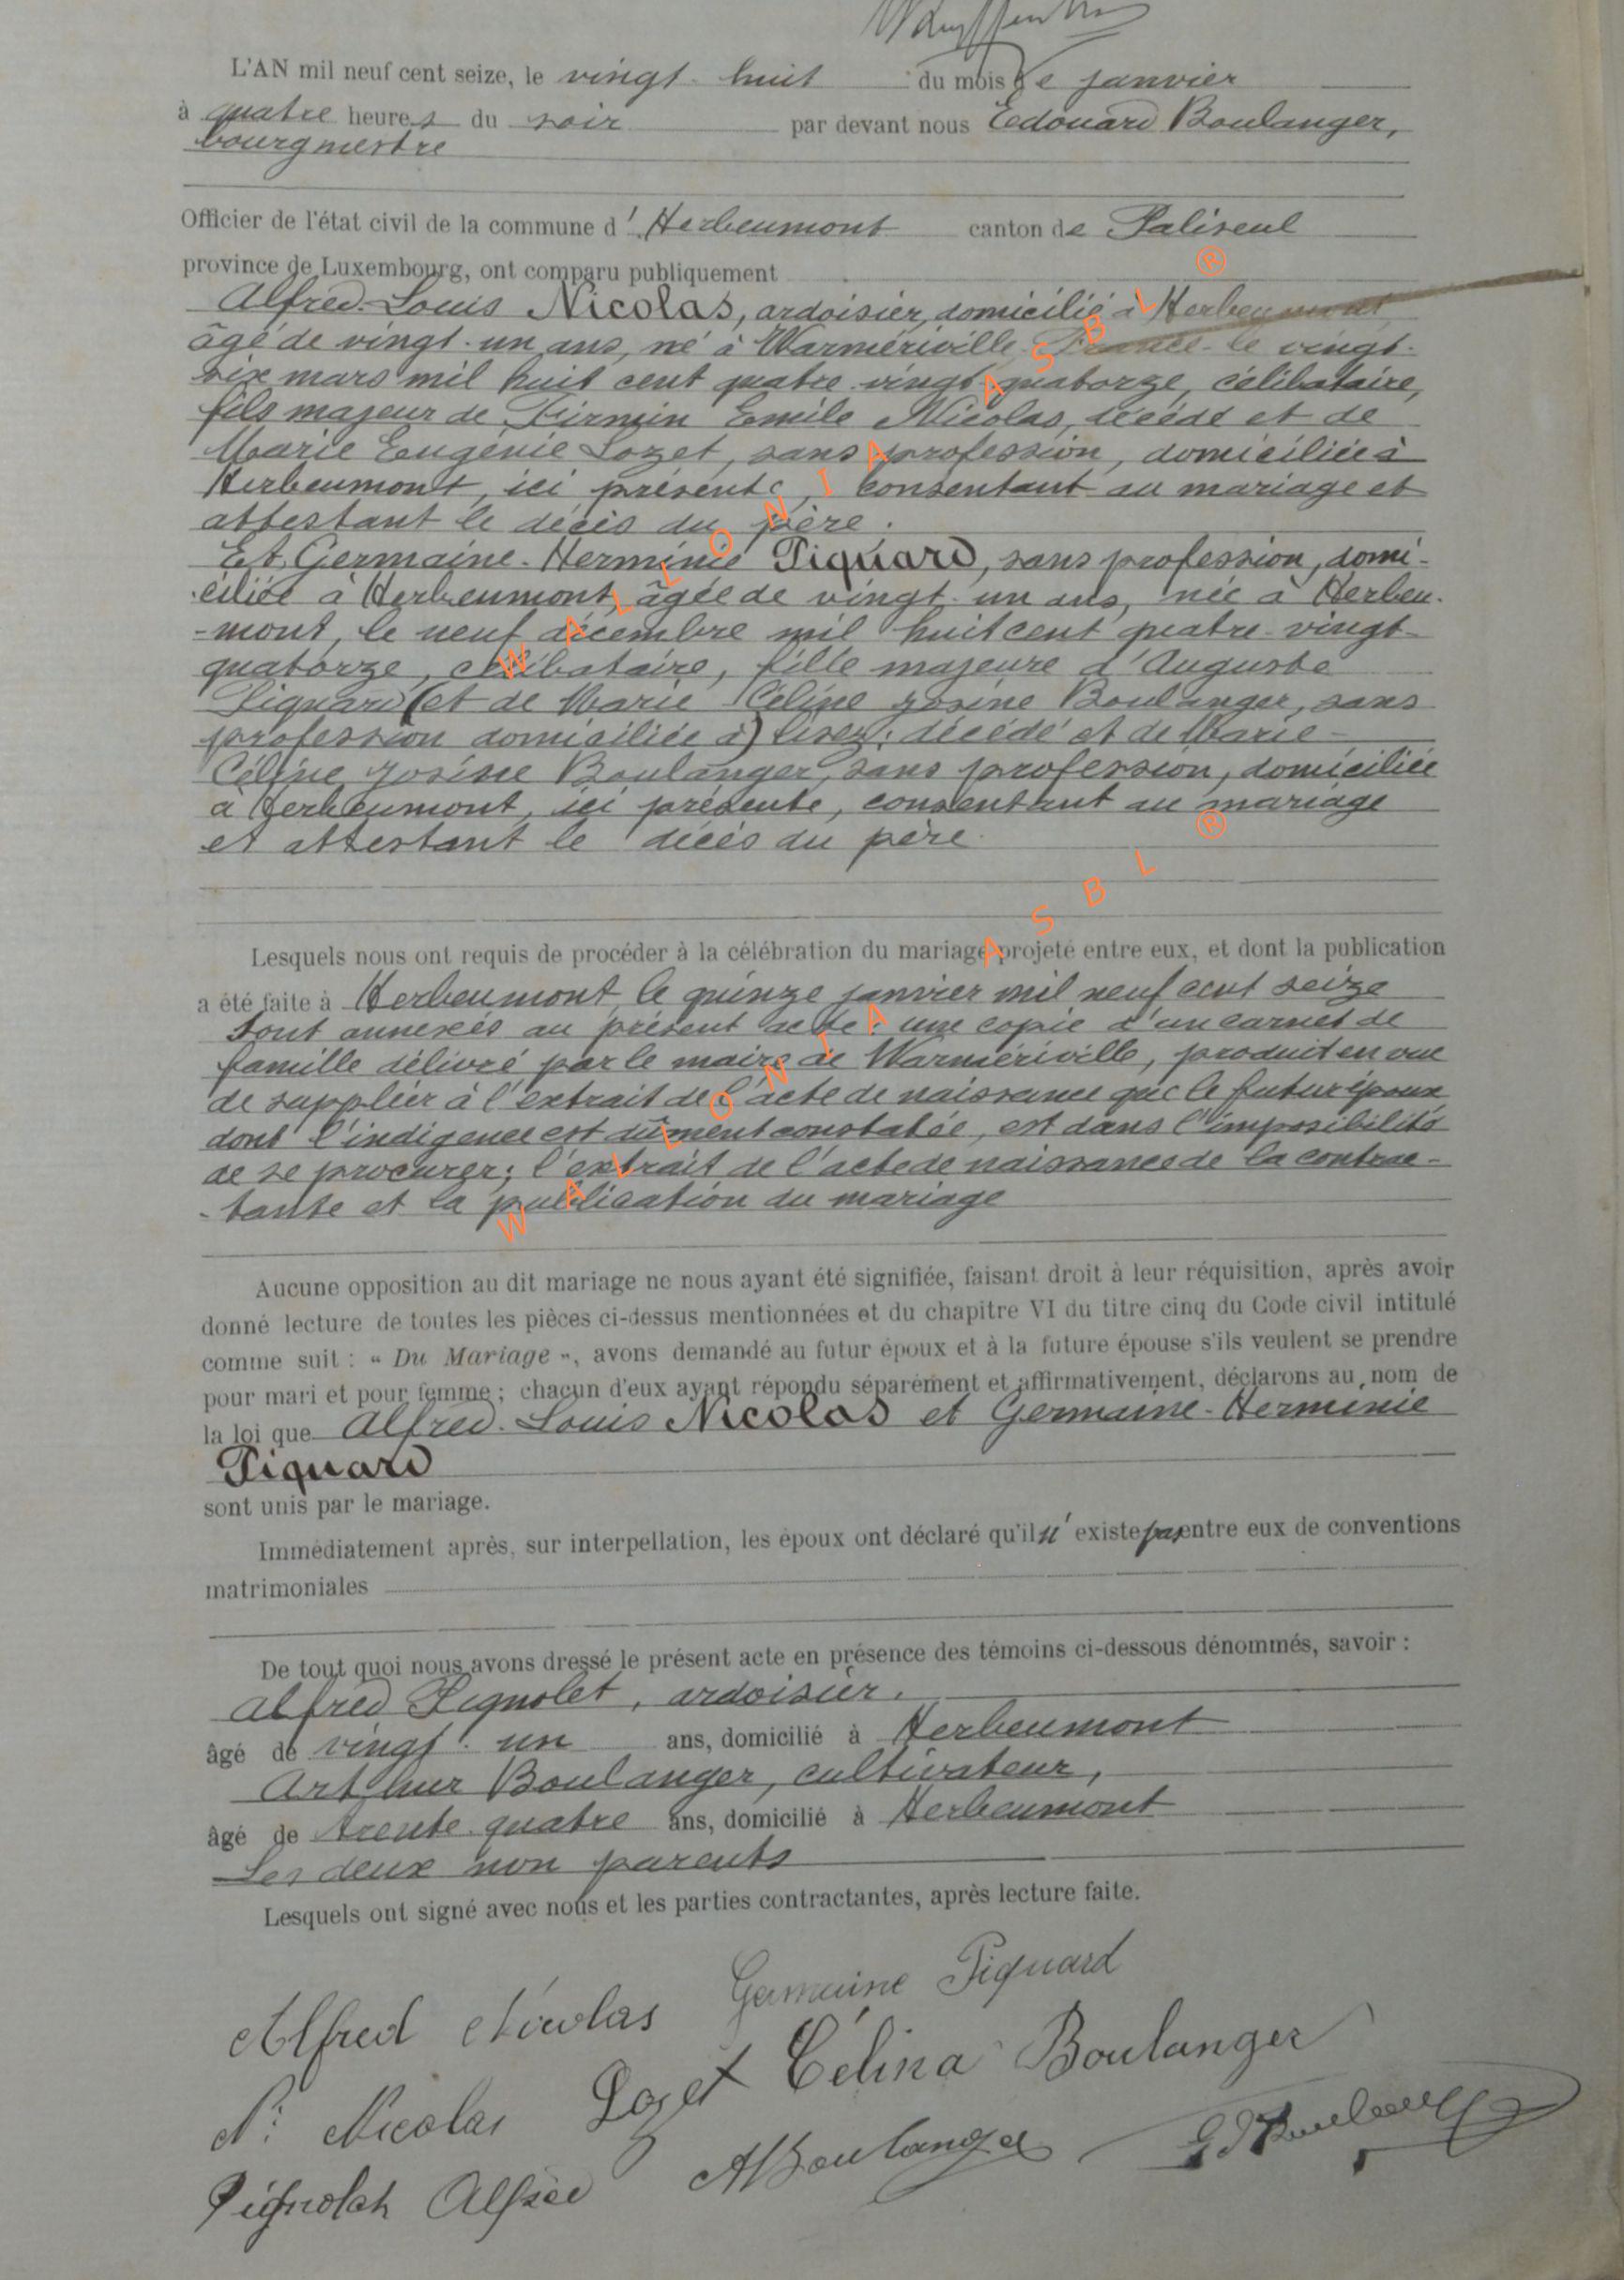 L'AN mil neuf cent seize, le vingt-huit du mois de janvier
à quatre heures du soir par devant nous Edouard Boulanger,
bourgmestre
Officier de l'état civil de la commune d'Herbeumont canton de Paliseul
province de Luxembourg, ont comparu publiquement
Alfred-Louis Nicolas, ardoisier, domicilié à Herbeumont
âgé de vingt-un ans, né à Warmériville-France-le vingt-
six mars mil huit cent quatre-vingt-quatorze, célibataire,
fils majeur de Firmin Emile Nicolas, décédé et de
Marie Eugénie Lozet, sans profession, domiciliée à
Herbeumont, ici présente, consentant au mariage et
attestant le décès du père.
Et Germaine-Herminie Piquard, sans profession, domi-
ciliée à Herbeumont, âgée de vingt-un ans, née à Herbeu-
-mont, le neuf décembre mil huit cent quatre-vingt-
quatorze, célibataire, fille majeure d'Auguste
Piquard (et de Marie Céline Josine Boulanger, sans
profession domiciliée à) lisez: décédé et de Marie-
Céline Josine Boulanger, sans profession, domiciliée
à Herbeumont, ici présente, consentant au mariage
et attestant le décès du père.
Lesquels nous ont requis de procéder à la célébration du mariage projeté entre eux, et dont la publication
a été faite à Herbeumont, le quinze janvier mil neuf cent seize
Sont annexés au présent acte: une copie d'un carnet de
famille délivré par le maire de Warmériville, produit en vue
de suppléer à l'extrait de l'acte de naissance que le futur époux
dont l'indigence est dûment constatée, est dans l'impossibilité
de se procurer; l'extrait de l'acte de naissance de la contrac-
-tante et la publication du mariage
Aucune opposition au dit mariage ne nous ayant été signifiée, faisant droit à leur réquisition, après avoir
donné lecture de toutes les pièces ci-dessus mentionnées et du chapitre VI du titre cinq du Code civil intitulé
comme suit : « Du Mariage », avons demandé au futur époux et à la future épouse s'ils veulent se prendre
pour mari et pour femme ; chacun d'eux ayant répondu séparément et affirmativement, déclarons au nom de
la loi que Alfred-Louis Nicolas et Germaine-Herminie
Piquard
sont unis par le mariage.
Immédiatement après, sur interpellation, les époux ont déclaré qu'il n'existe pas entre eux de conventions
matrimoniales
De tout quoi nous avons dressé le présent acte en présence des témoins ci-dessous dénommés, savoir :
Alfred Pignolet, ardoisier.
âgé de vingt-un ans, domicilié à Herbeumont
Arthur Boulanger, cultivateur,
âgé de trente-quatre ans, domicilié à Herbeumont
Les deux non parents
Lesquels ont signé avec nous et les parties contractantes, après lecture faite.
Alfred Nicolas Germaine Piquard
Nicolas Lozet Célina Boulanger
Pignolet Alfred ABoulanger Ed Boulanger
WALLONIA ASBL ®
WALLONIA ASBL ®